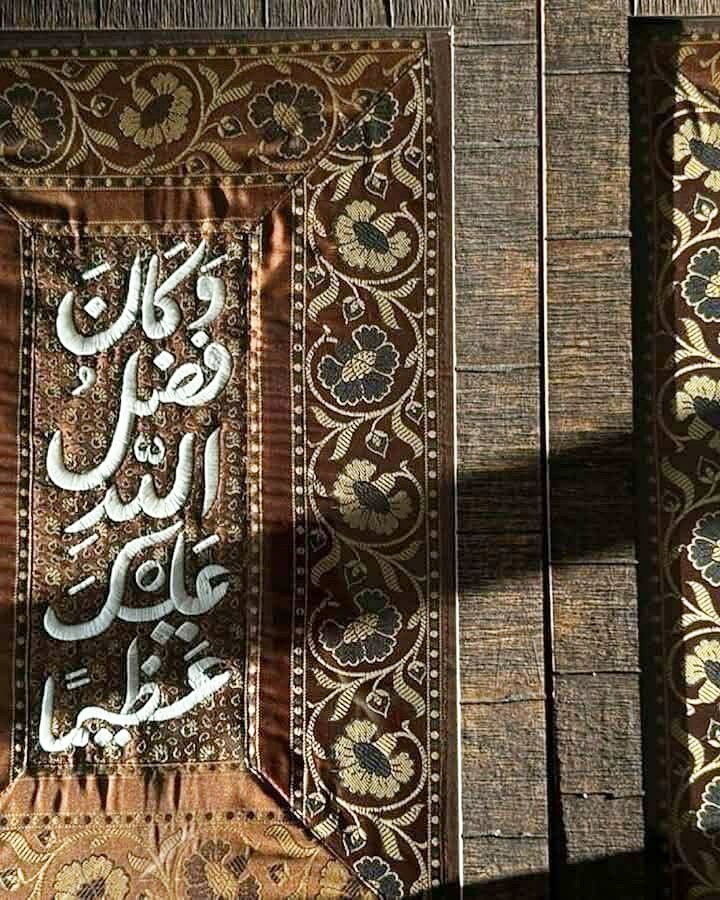 وَكَانَ
فَضْلُ
اللَّهِ
عَلَيْكَ
عَظِيمًا